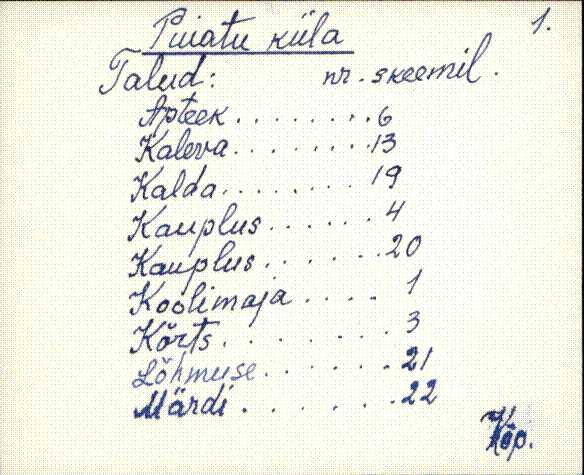 1.
Puiatu küla
Talud: nr. skeemil.
Apteek........6
Kaleva........13
Kalda........19
Kauplus......4
Kauplus......20
Koolimaja....1
Kõrts.......3
Lõhmuse......21
Märdi.......22
Kõp.